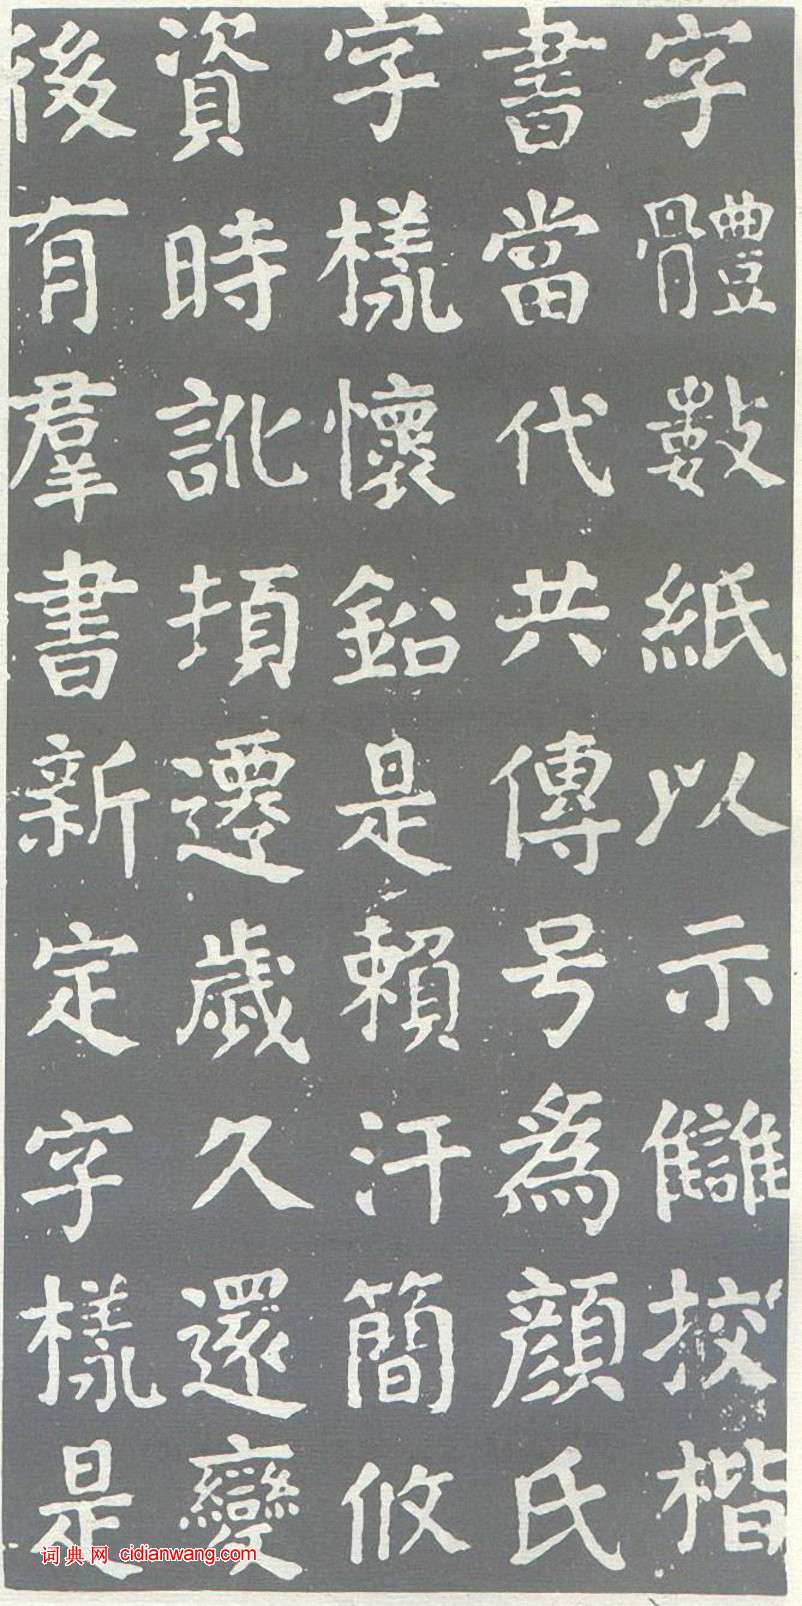 字體數紙以示讎挍楷
書當代共傳号為顏氏
字樣懷鉛是賴汗簡攸
資時訛頓遷歲久還變
後有羣書新定字樣是
词典网 cidianwang.com